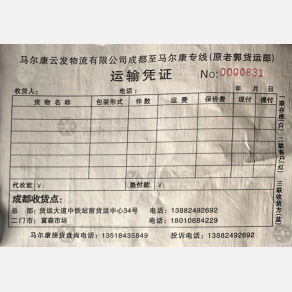 马尔康云发物流有限公司成都至马尔康专线(原老郭货运部)
运输凭证 No:0000831
收货人: 电话: 年 月 日
货物名称 包装形式 件数 运费 保价费 现付 提付
代收款 ¥: 垫付款 ¥:
一联存根(白) 二联客户(红) 三联收货方(蓝)
成都收货点:
总 部:货运大道中铁站前货运中心34号 电话:13882492692
二门市:富森市场 电话:18010684229
马尔康接货查询电话:13518435849 投诉电话:13882492692